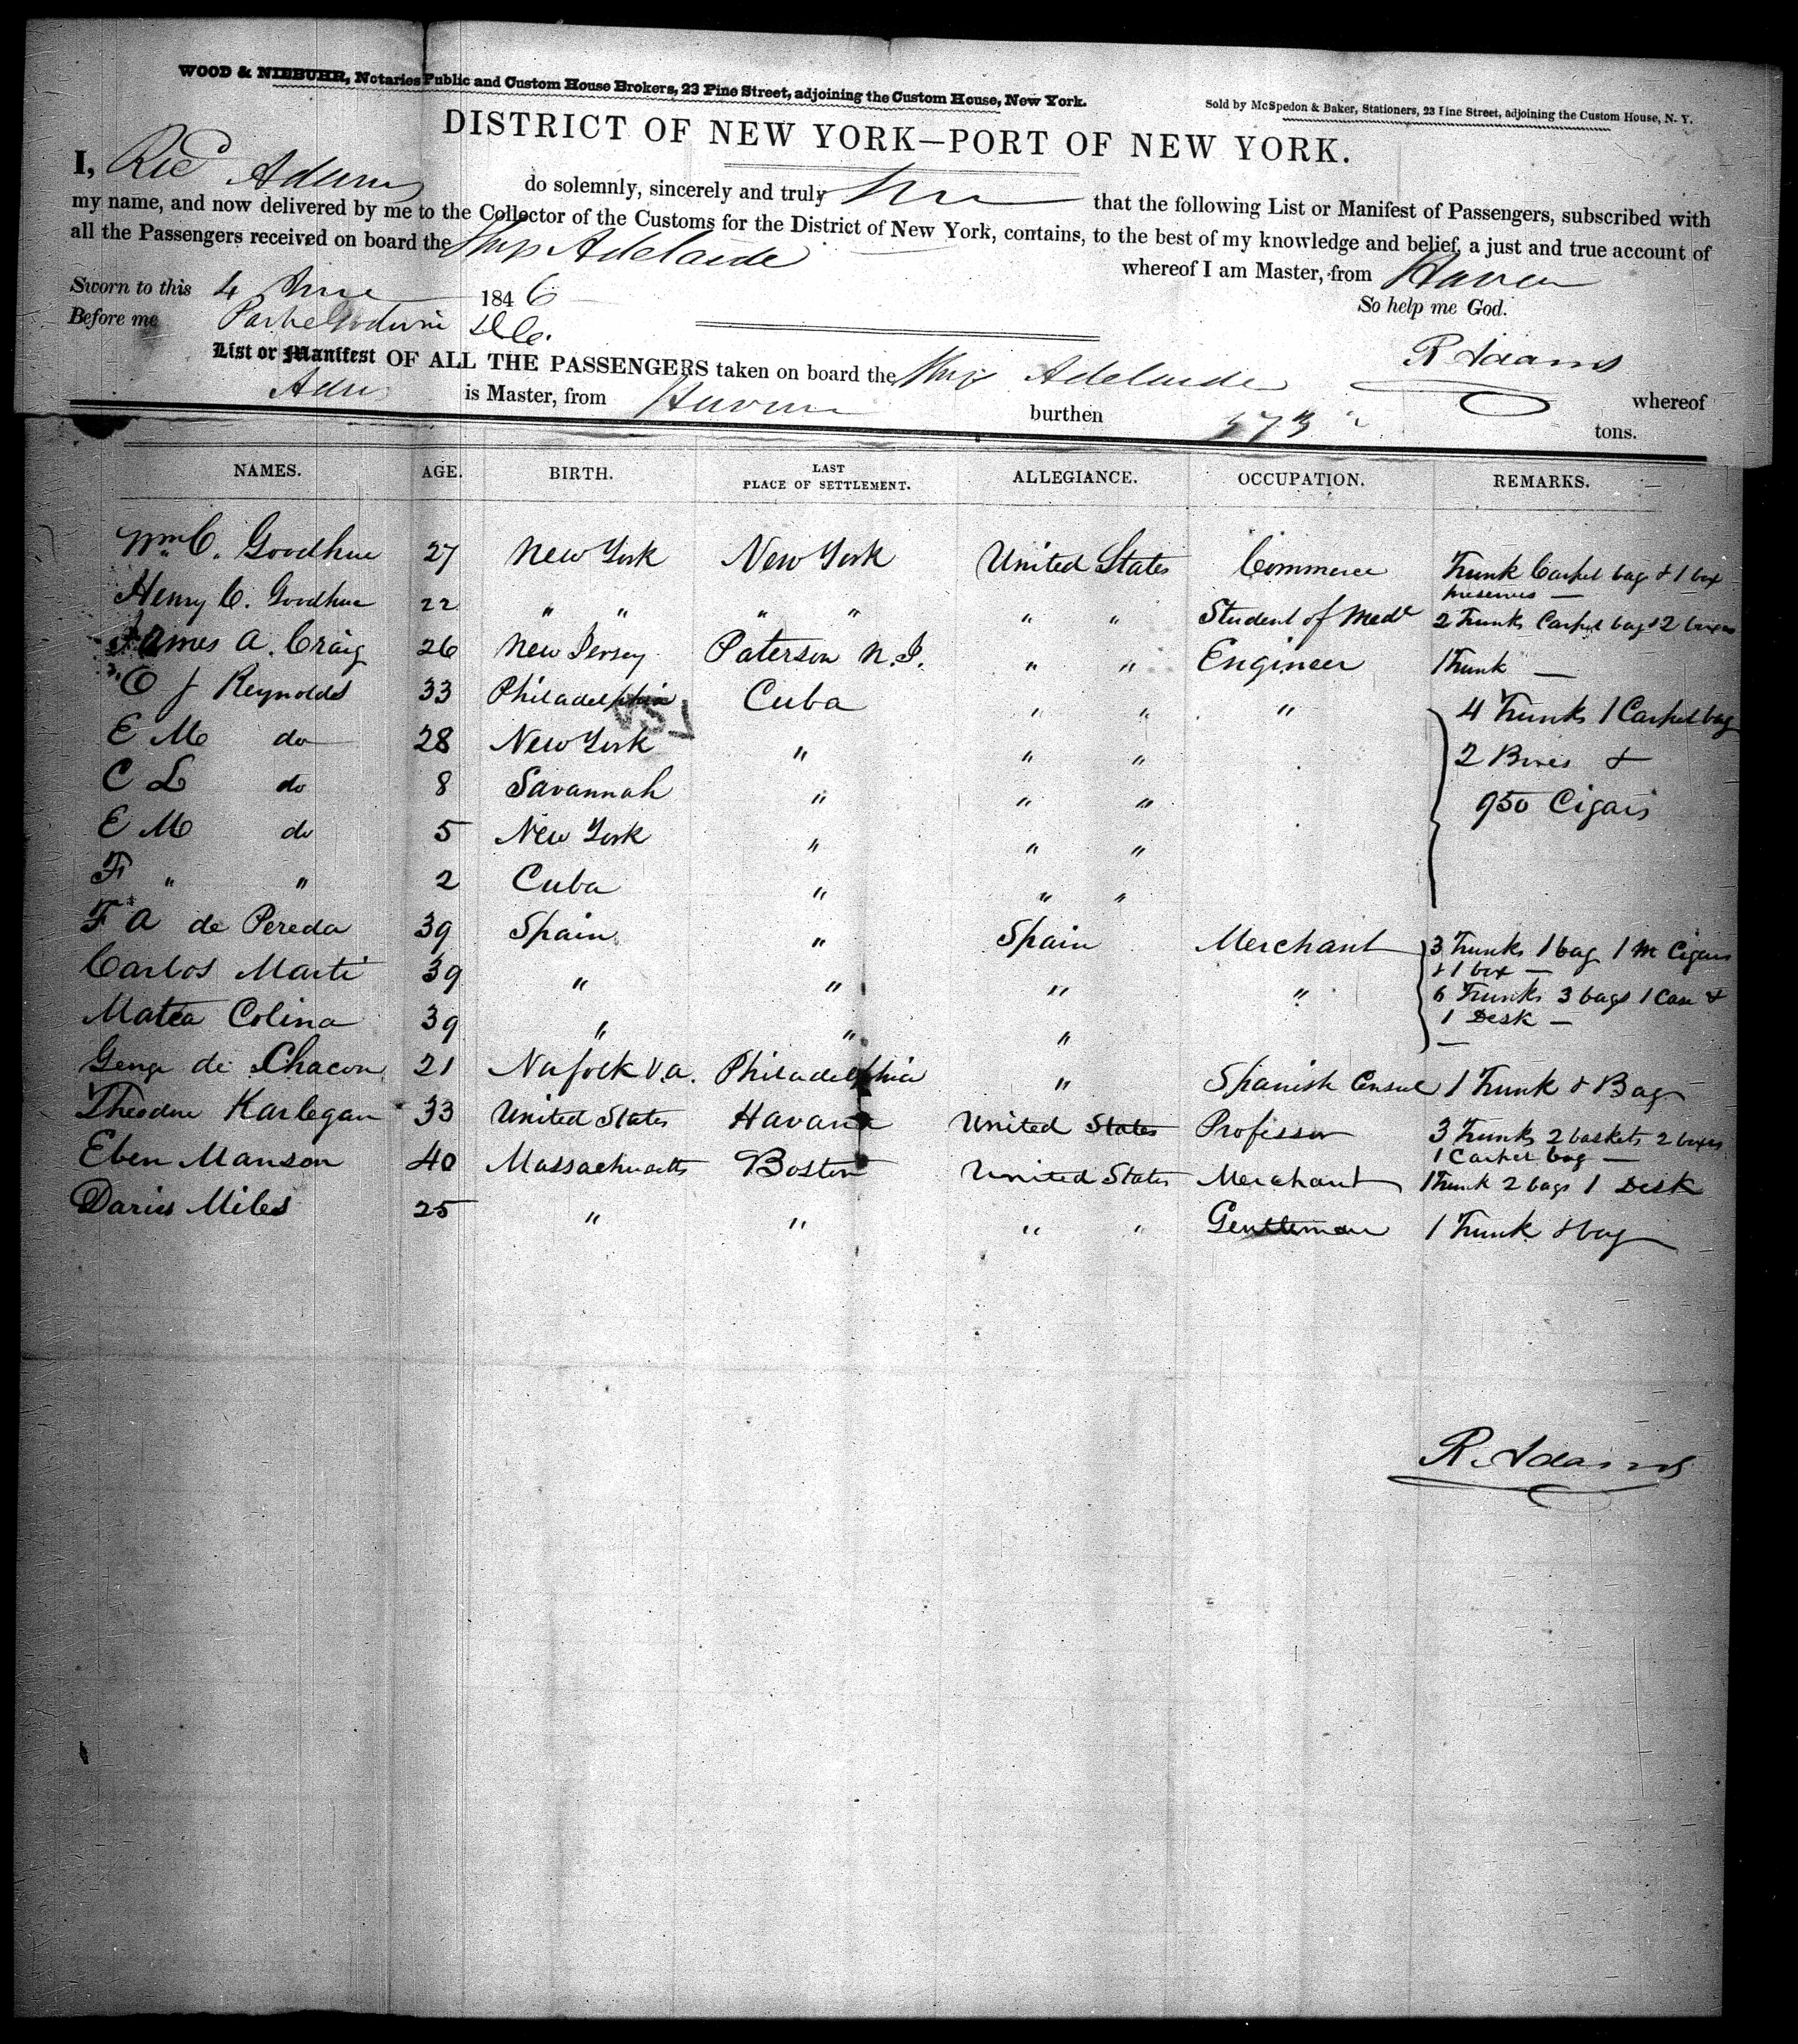 WOOD & NIEBUHR, Notaries Public and Custom House Brokers, 23 Pine Street, adjoining the Custom House, New York.
Sold by McSpedon & Baker, Stationers, 23 Pine Street, adjoining the Custom House, N. Y.
DISTRICT OF NEW YORK—PORT OF NEW YORK.
I, Ric Adams do solemnly, sincerely and truly that the following List or Manifest of Passengers, subscribed with
my name, and now delivered by me to the Collector of the Customs for the District of New York, contains, to the best of my knowledge and belief, a just and true account of
all the Passengers received on board the Ship Adelaide whereof I am Master, from Havana
Sworn to this 4 June 1846 So help me God.
Before me Parke Godwin
R Adams
List or Manifest OF ALL THE PASSENGERS taken on board the Ship Adelaide whereof
Adams is Master, from Havana burthen 573 tons.
NAMES. AGE. BIRTH. LAST PLACE OF SETTLEMENT. ALLEGIANCE. OCCUPATION. REMARKS.
Wm C. Goodhue 27 New York New York United States Commerce Trunk Carpet bag & 1 box
preserves —
Henry C. Goodhue 22 " " " " " " Student of Med 2 Trunks Carpet bag & 2 boxes
James A. Craig 26 New Jersey Paterson N.J. " " Engineer 1 Trunk —
C J Reynolds 33 Philadelphia Cuba " " " 4 Trunks 1 Carpet bag
E M do 28 New York " " " 2 Boxes &
C L do 8 Savannah " " " 950 Cigars
E M do 5 New York " " "
F " " 2 Cuba " " "
F A de Pereda 39 Spain " Spain Merchant 3 Trunks 1 bag 1 M Cigars
& 1 box —
Carlos Marti 39 " " " " 6 Trunks 3 bags 1 Case &
1 Desk —
Matea Colina 39 " " " —
de Chacon 21 Nafolk Va. Philadelphia " Spanish Consul 1 Trunk & Bag
Theodore Karlegan 33 United States Havana United States Professor 3 Trunks 2 baskets 2 boxes
1 Carpet bag —
Eben Manson 40 Massachusetts Boston United States Merchant 1 Trunk 2 bags 1 Desk
Darius Miles 25 " " " " Gentleman 1 Trunk & bag
R. Adams